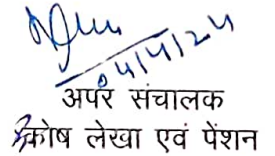 04/4/24
अपर संचालक
कोष लेखा एवं पेंशन